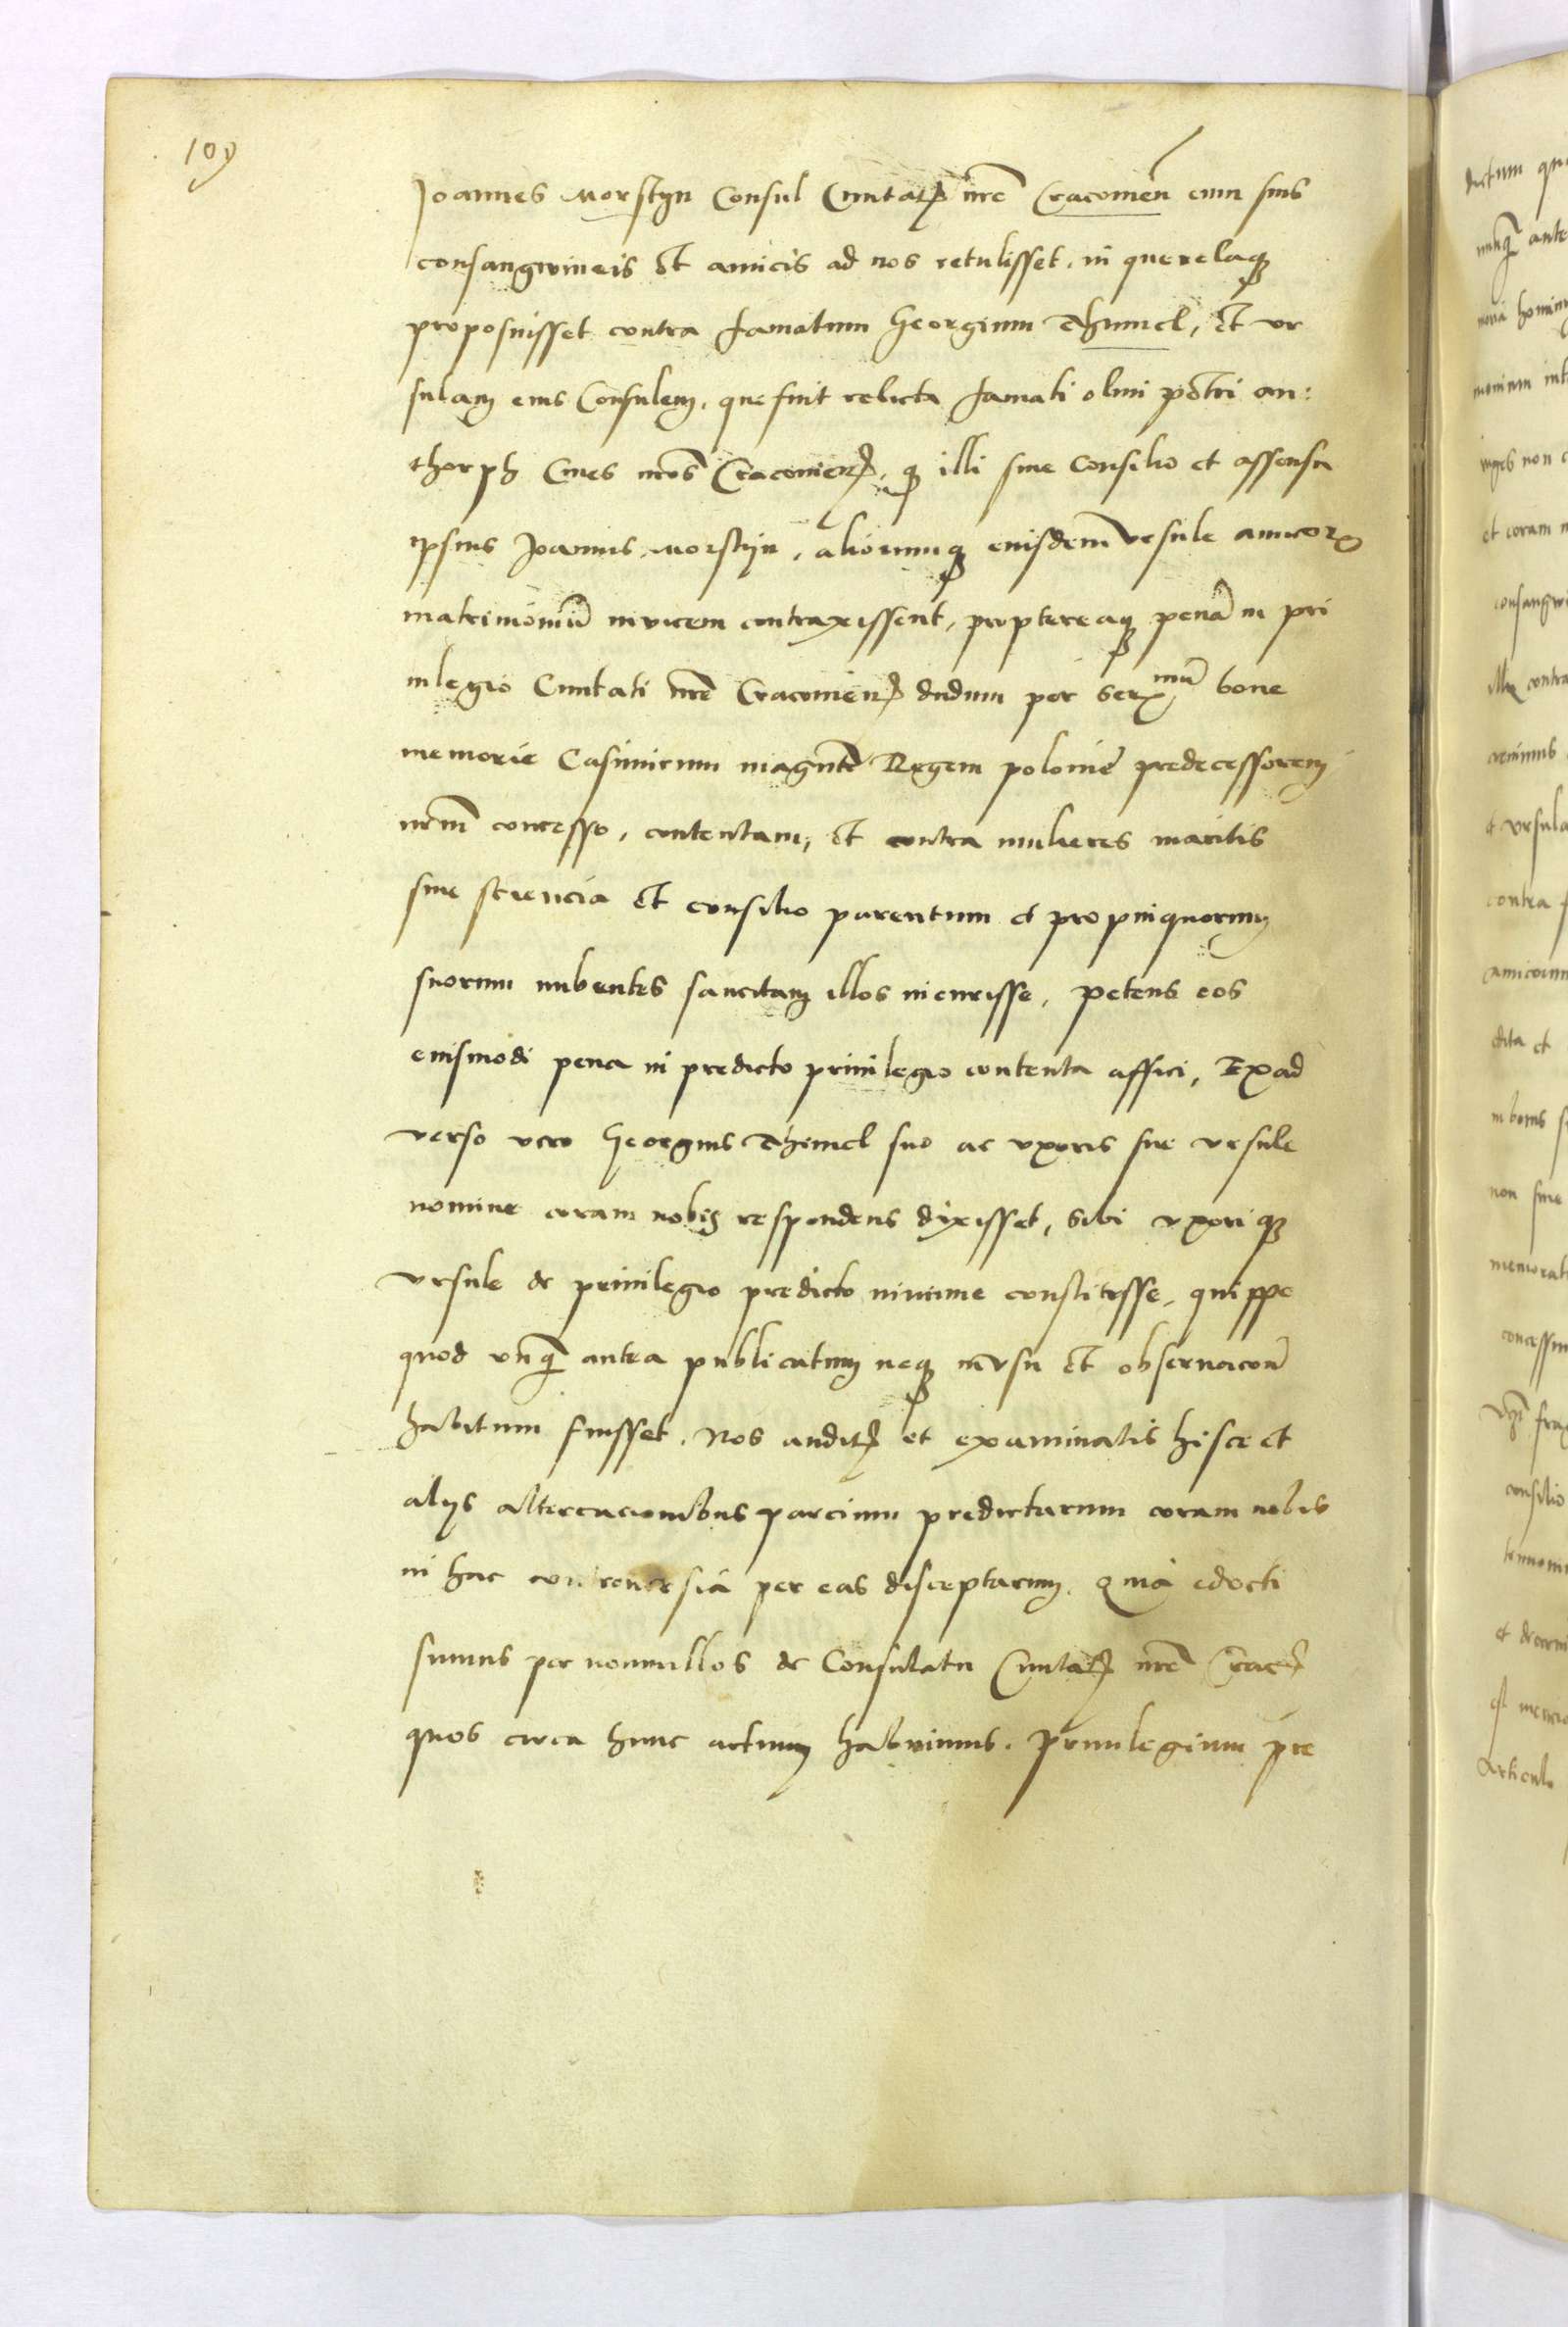 109
Joannes Morstyn Consul Ciuitatꝭ nr̃e Cracouieñ cum suis
consangwineis et amicis ad nos retulisset, in querelaqꝫ
proposuisset contra famatum Georgium Thimel, et vr
sulam eius Consulem, que fuit relicta famati olim pẽtri an:
thorph Ciues nr̃os Cracouieñ, qꝫ illi sine Consilio et assensu
ipsius Joannis Morstyn, aliorumqꝫ eiusdem vrsule amicorꝫ
matrimoniũ inuicem contraxissent, proptereaqꝫ penã in pri
uilegio Ciuitati nr̃e Cracouieñ dudum per serᵐᵘ̃ bone
memorie Casimirum magnũ Regem polonie predecessorem
nr̃m concesso, contentam, et contra mulieres maritis
sine sciencia et consilio parentum et propinquorum
suorum nubentes sancitam illos incurrisse, petens eos
eiusmodi pena in predicto priuilegio contenta affici, Ex ad
verso vero Georgius Thimel suo ac vxoris sue vrsule
nomine coram nobis respondens dixisset, sibi vxoriqꝫ
vrsule de priuilegio predicto minime constitisse, quippe
quod vnqꝫ antea publicatum neqꝫ in vsu et obseruacõe
habitum fuisset. Nos auditꝭ et examinatis hisce et
alijs altercacionibus parcium predictarum coram nobis
in hac controuersia per eas disceptarum. Quia edocti
sumus per nonnullos de Consulatu Ciuitatꝭ nr̃e Crac̃
quos circa hunc actum habuimus. Priuilegium pre